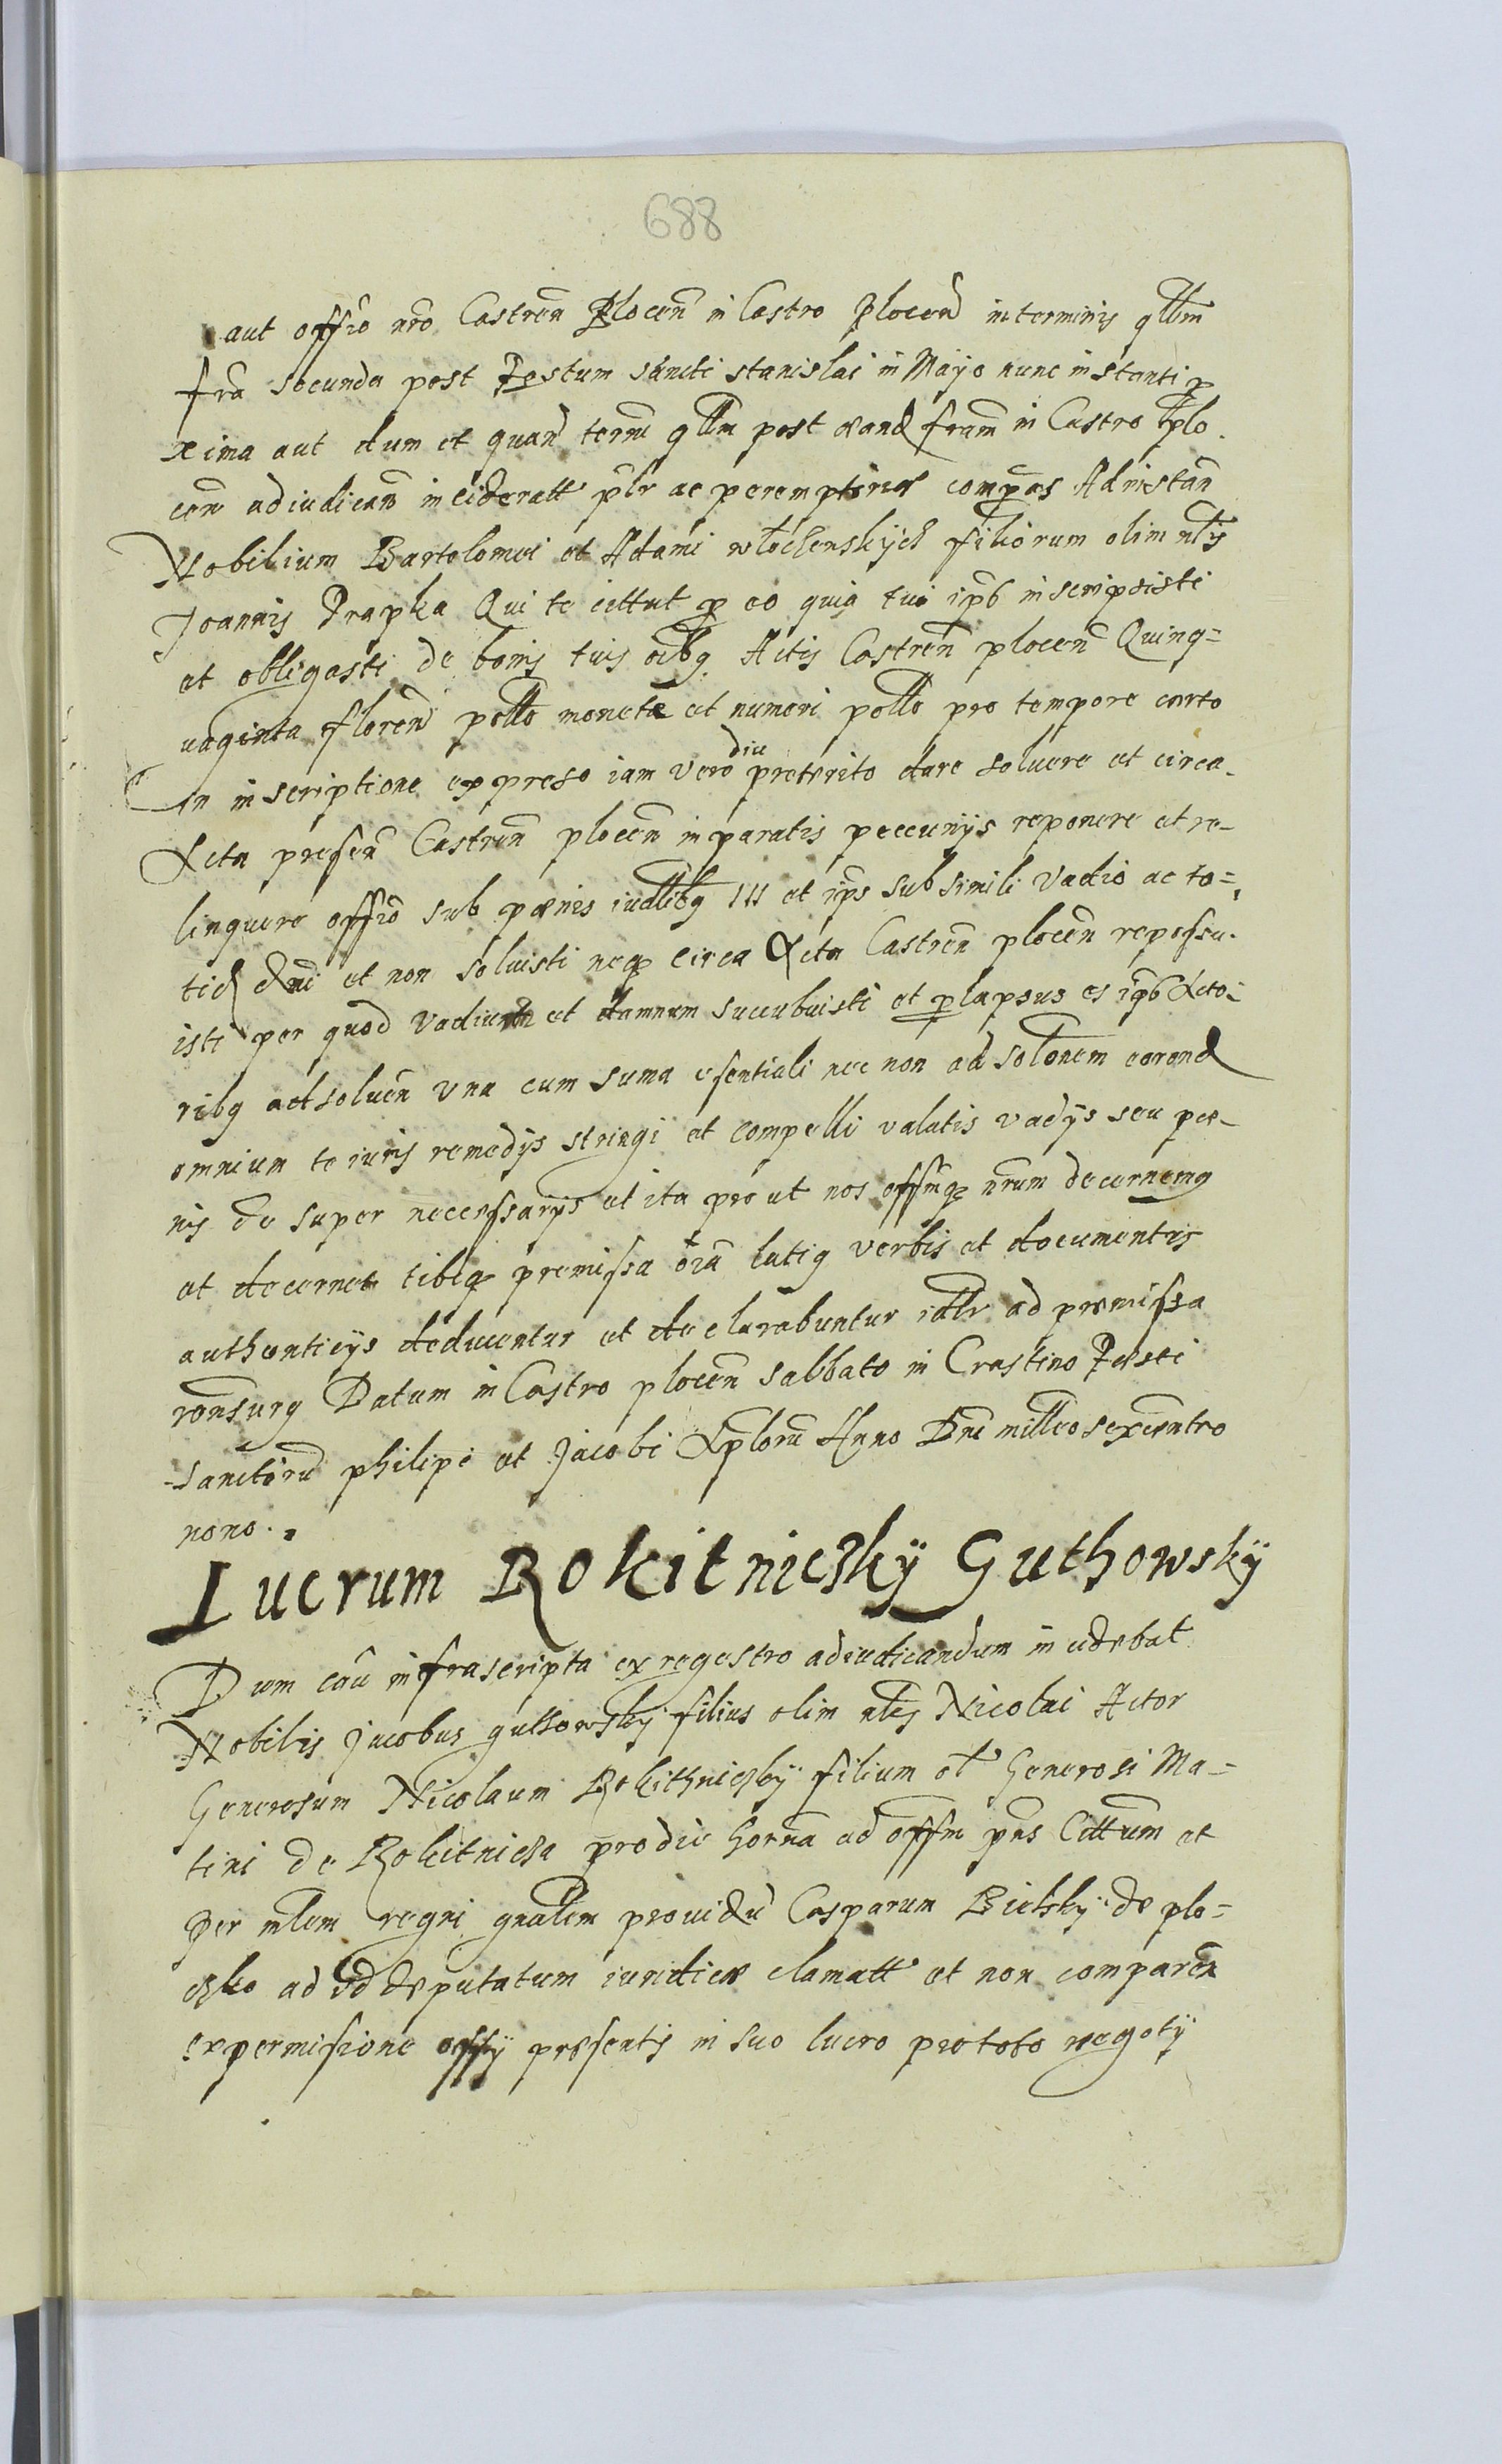 688
aut offio nro Castren Plocen in Castro Plocen in terminis qllm
fria secunda post Festum Sancti Stanislai in Mayo nunc instanti p
xima aut dum et quan termi qllm post eand friam in Castro Plo
cen adiudican incideratt plr ac peremptorie compas Ad instan
Nobilium Bartolomei et Adami Włochenskych filiorum olim nlis
Joannis Prapka Qui te cittat p eo quia tui ipb inscripsisti
et obligasti de bonis tuis oibq Actis Castren plocen Quinq=
uaginta floren pollo moneta et numeri pollo pro tempore certo
in inscriptione expreso iam vero diu preterito dare soluere et circa
Acta presen Castren plocen in paratis peccunijs reponere et re-
linquere offio sub pænis iudlibq 111 et ips sub simili Vadio ac to=
tid dni et non soluisti neq circa Acta Castren plocen reposu-
isti per quod vadium et damnum sucubuisti et plapsus es ipb Acto-
ribq adsoluen vna cum suma esentiali nec non ad solonem eorend
omnium te iuris remedijs stringi et compelli valatis vadijs seu pæ-
nis de super necenssarijs et ita pro ut nos offmq nrum decernemq
et decernet tibiq premissa oia latiq verbis et documentis
authenticijs deducentur et declarabuntur itllr ad premissa
ronsurq Datum in Castro plocen Sabbato in Crastino Festi
Sanctoru philipi et Jacobi Aploru Anno Dni milleo sexcentro
nono.
Lucrum Rokitniczky Guthowsky
Dum cau infrascripta ex regestro adiudicandum incidebat
Nobilis Jacobus guthowsky filius olim nlis Nicolai Actor
Generosum Nicolaum Rokithniczky filium ol Generosi Ma-
tini de Rokitnicza pro die horna ad offm pns Cittum et
per mlem regni gnalem prouidu Casparum Bielsky de plo=
czko ad id deputatum iuridice clamatt et non comparen
ex permisione offij presentis in suo lucro pro toto negotij